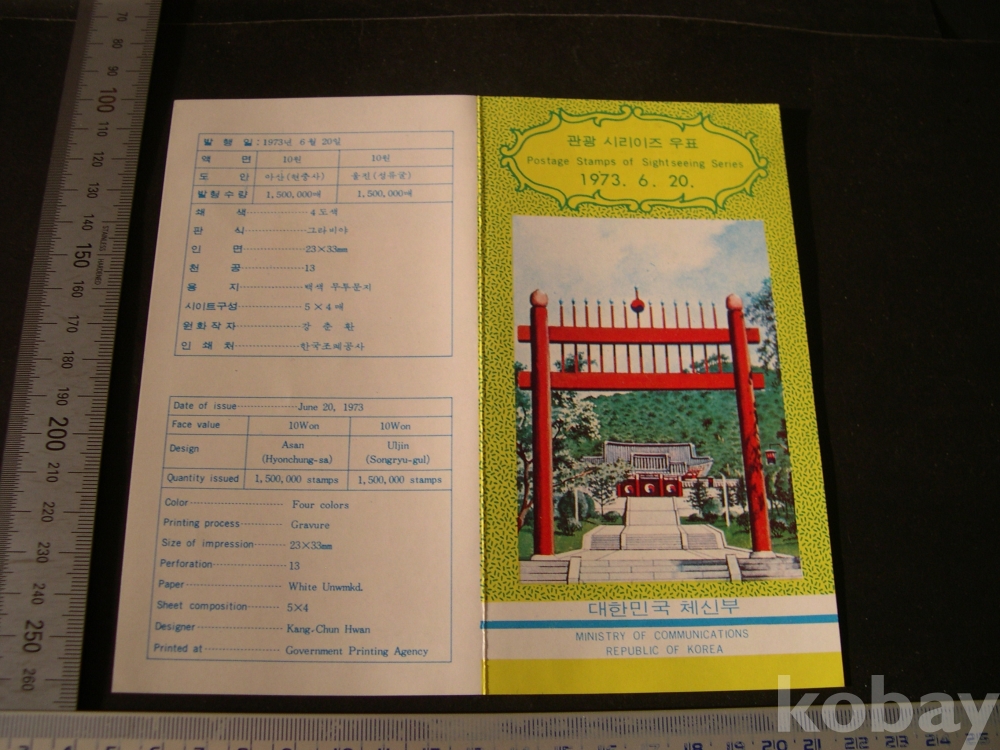 발 행 일 : 1973년 6월 20일
액 면 10원 10원
도 안 아산(현충사) 울진(성류굴)
발행수량 1,500,000매 1,500,000매
채 색 4도색
판 식 그라비아
인 면 23×33mm
천 공 13
용 지 백색 무투문지
시이트구성 5×4매
원화작자 강 춘 환
인 쇄 처 한국조폐공사
Date of issue June 20, 1973
Face value 10Won 10Won
Design Asan (Hyonchung-sa) Uljin (Songryu-gul)
Quantity issued 1,500,000 stamps 1,500,000 stamps
Color Four colors
Printing process Gravure
Size of impression 23×33mm
Perforation 13
Paper White Unwmkd.
Sheet composition 5×4
Designer Kang, Chun Hwan
Printed at Government Printing Agency
관광 시리이즈 우표
Postage Stamps of Sightseeing Series
1973. 6. 20.
대한민국 체신부
MINISTRY OF COMMUNICATIONS
REPUBLIC OF KOREA
kobay
70
80
90
100
110
120
130
140
STAINLESS HARDENED
150
160
170
180
190
200
210
220
230
240
250
260